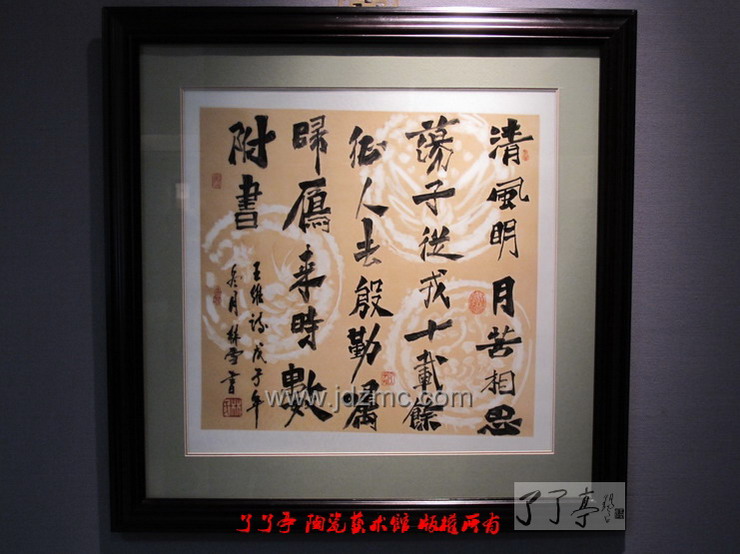 清風明月苦相思
蕩子從戎十載餘
征人去殷勤屬
歸鴈来時數
附書
王維詩戊子年
月林雪書
www.jdzmc.com
了了亭 陶瓷艺术馆 版权所有
了了亭